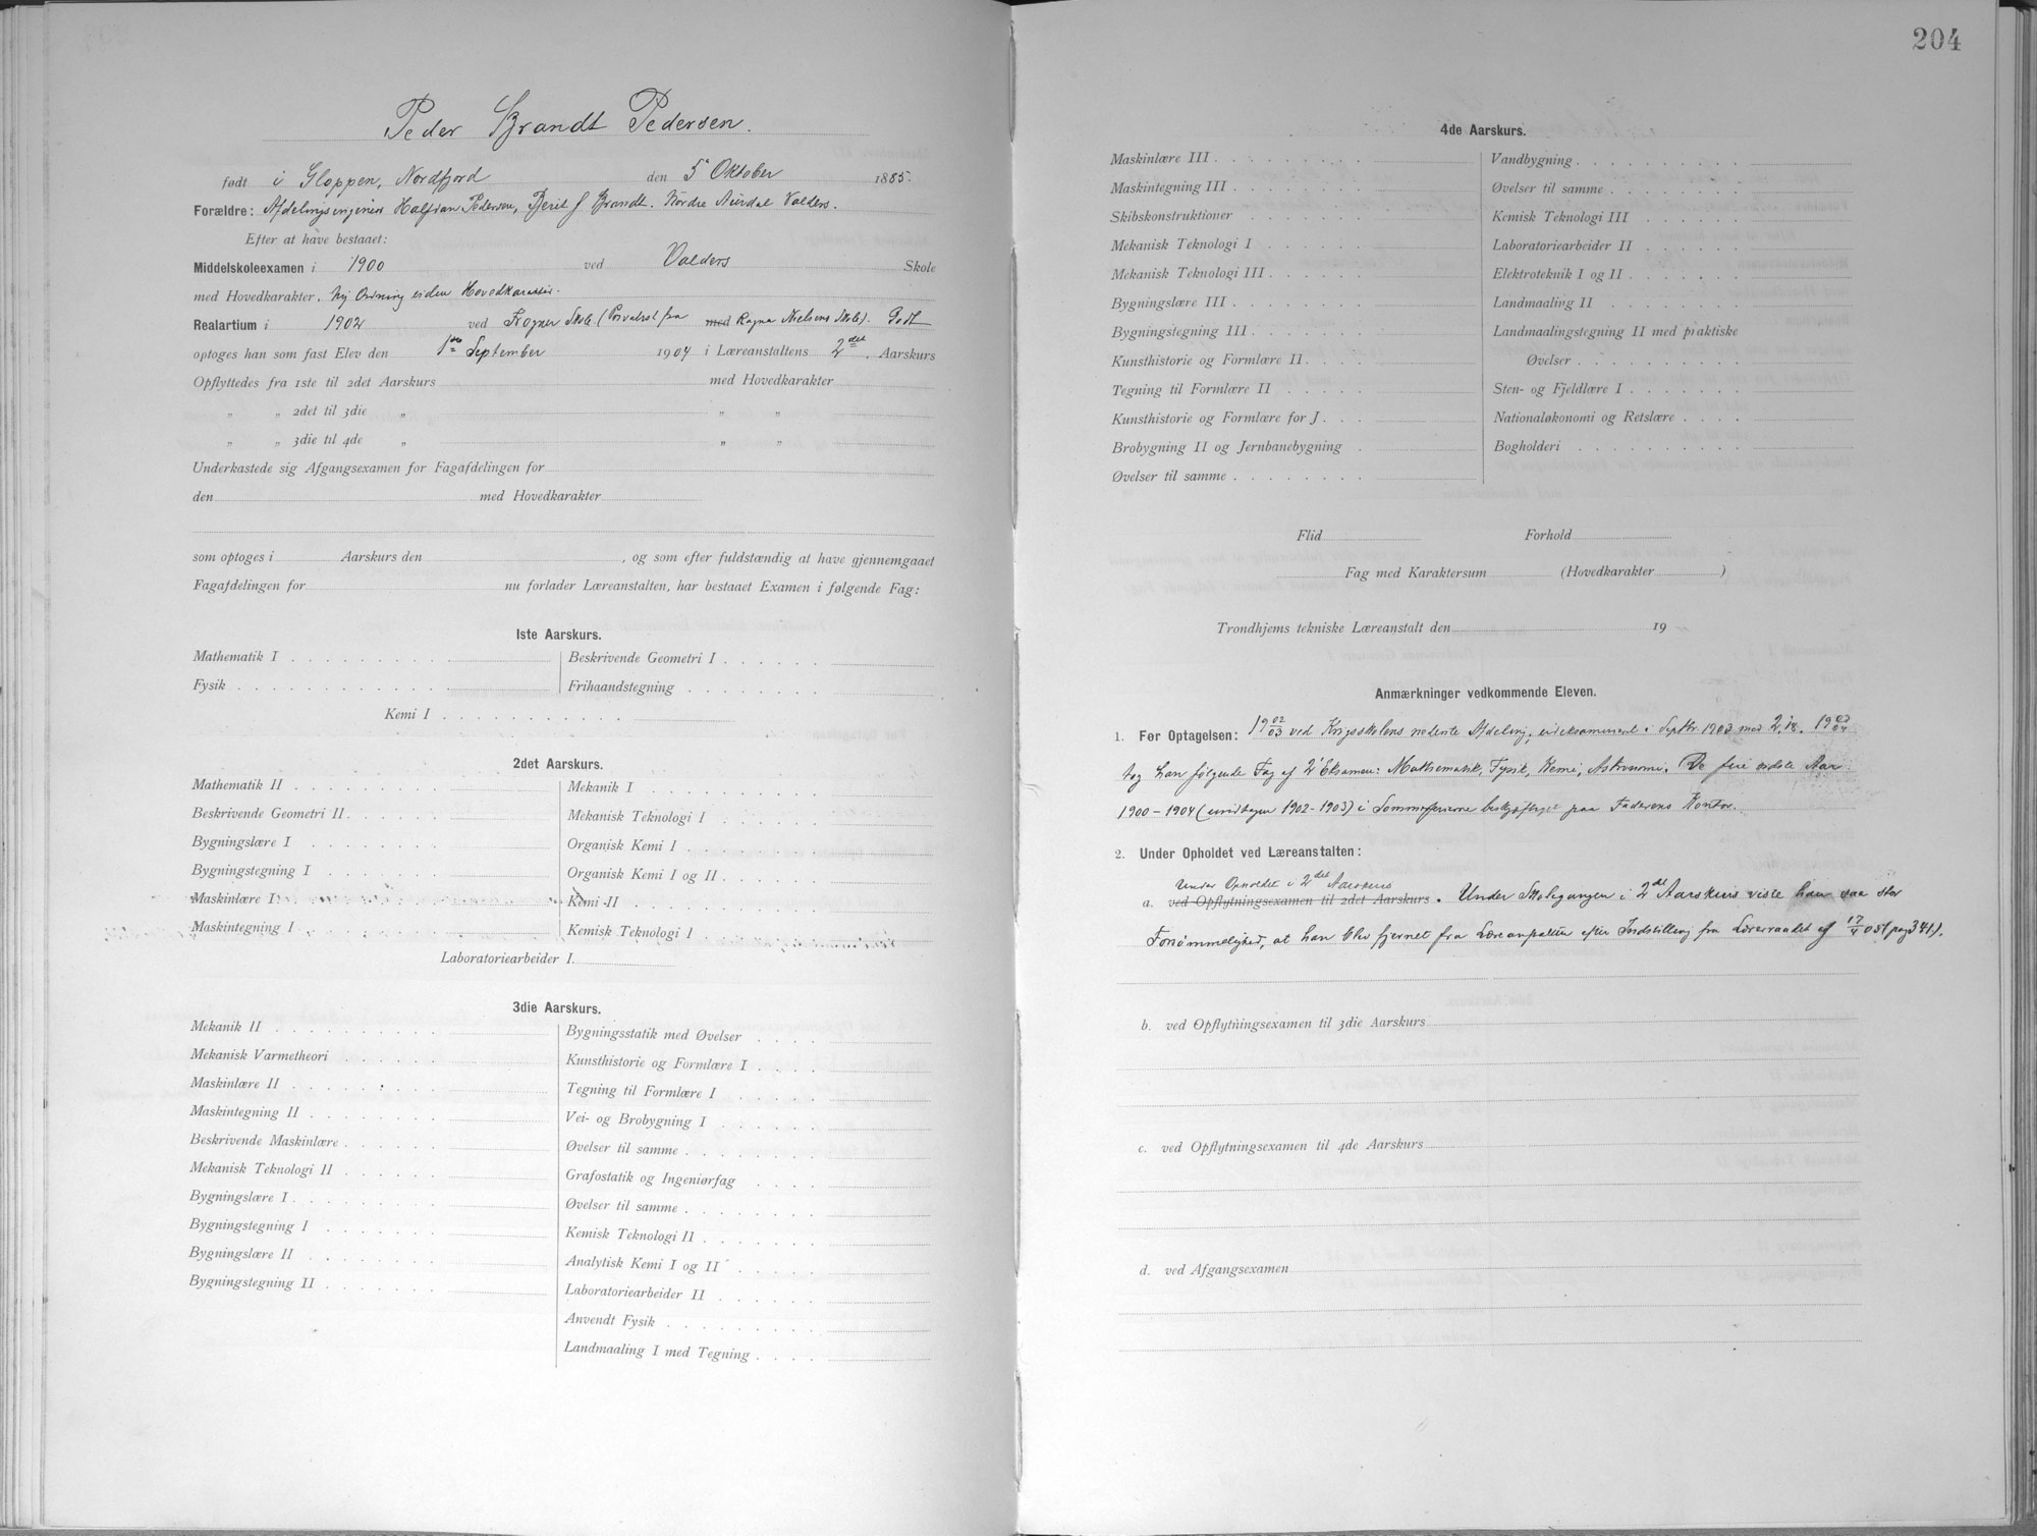 Peder Brandt Pedersen.
født i Gloppen, Nordfjord den 5 Oktober 1885.
Forældre: Afdelingsingeniør Halfdan Pedersen, Berit f Brandt. Nordre Aurdal Valders.
Efter at have bestaaet:
Middelskoleexamen i 1900 ved Valders Skole
med Hovedkarakter. Ny Ordning uden Hovedkarakter.
Realartium i 1902 ved Frogner Skole (Privatist fra med Ragna Nielsens Skole). Godt
optoges han som fast Elev den 1ste September 1904 i Læreanstaltens 2det. Aarskurs
Opflyttedes fra 1ste til 2det Aarskurs med Hovedkarakter
„ „ 2det til 3die „ „ „
„ „ 3die til 4de „ „ „
Underkastede sig Afgangsexamen for Fagafdelingen for
den med Hovedkarakter
som optoges i Aarskurs den , og som efter fuldstændig at have gjennemgaaet
Fagafdelingen for nu forlader Læreanstalten, har bestaaet Examen i følgende Fag:
1ste Aarskurs.
Mathematik I
Fysik
Beskrivende Geometri I
Frihaandstegning
Kemi I
2det Aarskurs.
Mathematik II
Beskrivende Geometri II
Bygningslære I
Bygningstegning I
Maskinlære I
Maskintegning I
Mekanik I
Mekanisk Teknologi I
Organisk Kemi I
Organisk Kemi I og II
Kemi II
Kemisk Teknologi I
Laboratoriearbeider I.
3die Aarskurs.
Mekanik II
Mekanisk Varmetheori
Maskinlære II
Maskintegning II
Beskrivende Maskinlære
Mekanisk Teknologi II
Bygningslære I
Bygningstegning I
Bygningslære II
Bygningstegning II
Bygningsstatik med Øvelser
Kunsthistorie og Formlære I
Tegning til Formlære I
Vei- og Brobygning I
Øvelser til samme
Grafostatik og Ingeniørfag
Øvelser til samme
Kemisk Teknologi II
Analytisk Kemi I og II
Laboratoriearbeider II
Anvendt Fysik
Landmaaling I med Tegning
204
4de Aarskurs.
Maskinlære III
Maskintegning III
Skibskonstruktioner
Mekanisk Teknologi I
Mekanisk Teknologi III
Bygningslære III
Bygningstegning III
Kunsthistorie og Formlære II
Tegning til Formlære II
Kunsthistorie og Formlære for J
Brobygning II og Jernbanebygning
Øvelser til samme
Vandbygning
Øvelser til samme
Kemisk Teknologi III
Laboratoriearbeider II
Elektroteknik I og II
Landmaaling II
Landmaalingstegning II med praktiske
Øvelser
Sten- og Fjeldlære I
Nationaløkonomi og Retslære
Bogholderi
Flid Forhold
Fag med Karaktersum (Hovedkarakter )
Trondhjems tekniske Læreanstalt den 19
Anmærkninger vedkommende Eleven.
1. Før Optagelsen: 19 02/03 ved Krigsskolens nederste Afdeling, i Septbr 1903 med 2,18. 19 03/04
tog han følgende Fag af 2' Eksamen: Mathematik, Fysik, Kemi, Astronomi. De fire sidste Aar
1900 – 1904 (undtagen 1902-1903) i Sommerferierne beskjæftiget paa Faderens Kontor.
2. Under Opholdet ved Læreanstalten:
Under Opholdet i 2det Aarskurs
a. ved Opflytningsexamen til 2det Aarskurs. Under Skolegangen i 2det Aarskurs viste han saa stor
Forsømmelighed, at han blev fjernet fra Læreanstalten efter Indstilling fra Lærerraadet af 17/4 05 (pag 341).
b. ved Opflytningsexamen til 3die Aarskurs
c. ved Opflytningsexamen til 4de Aarskurs
d. ved Afgangsexamen